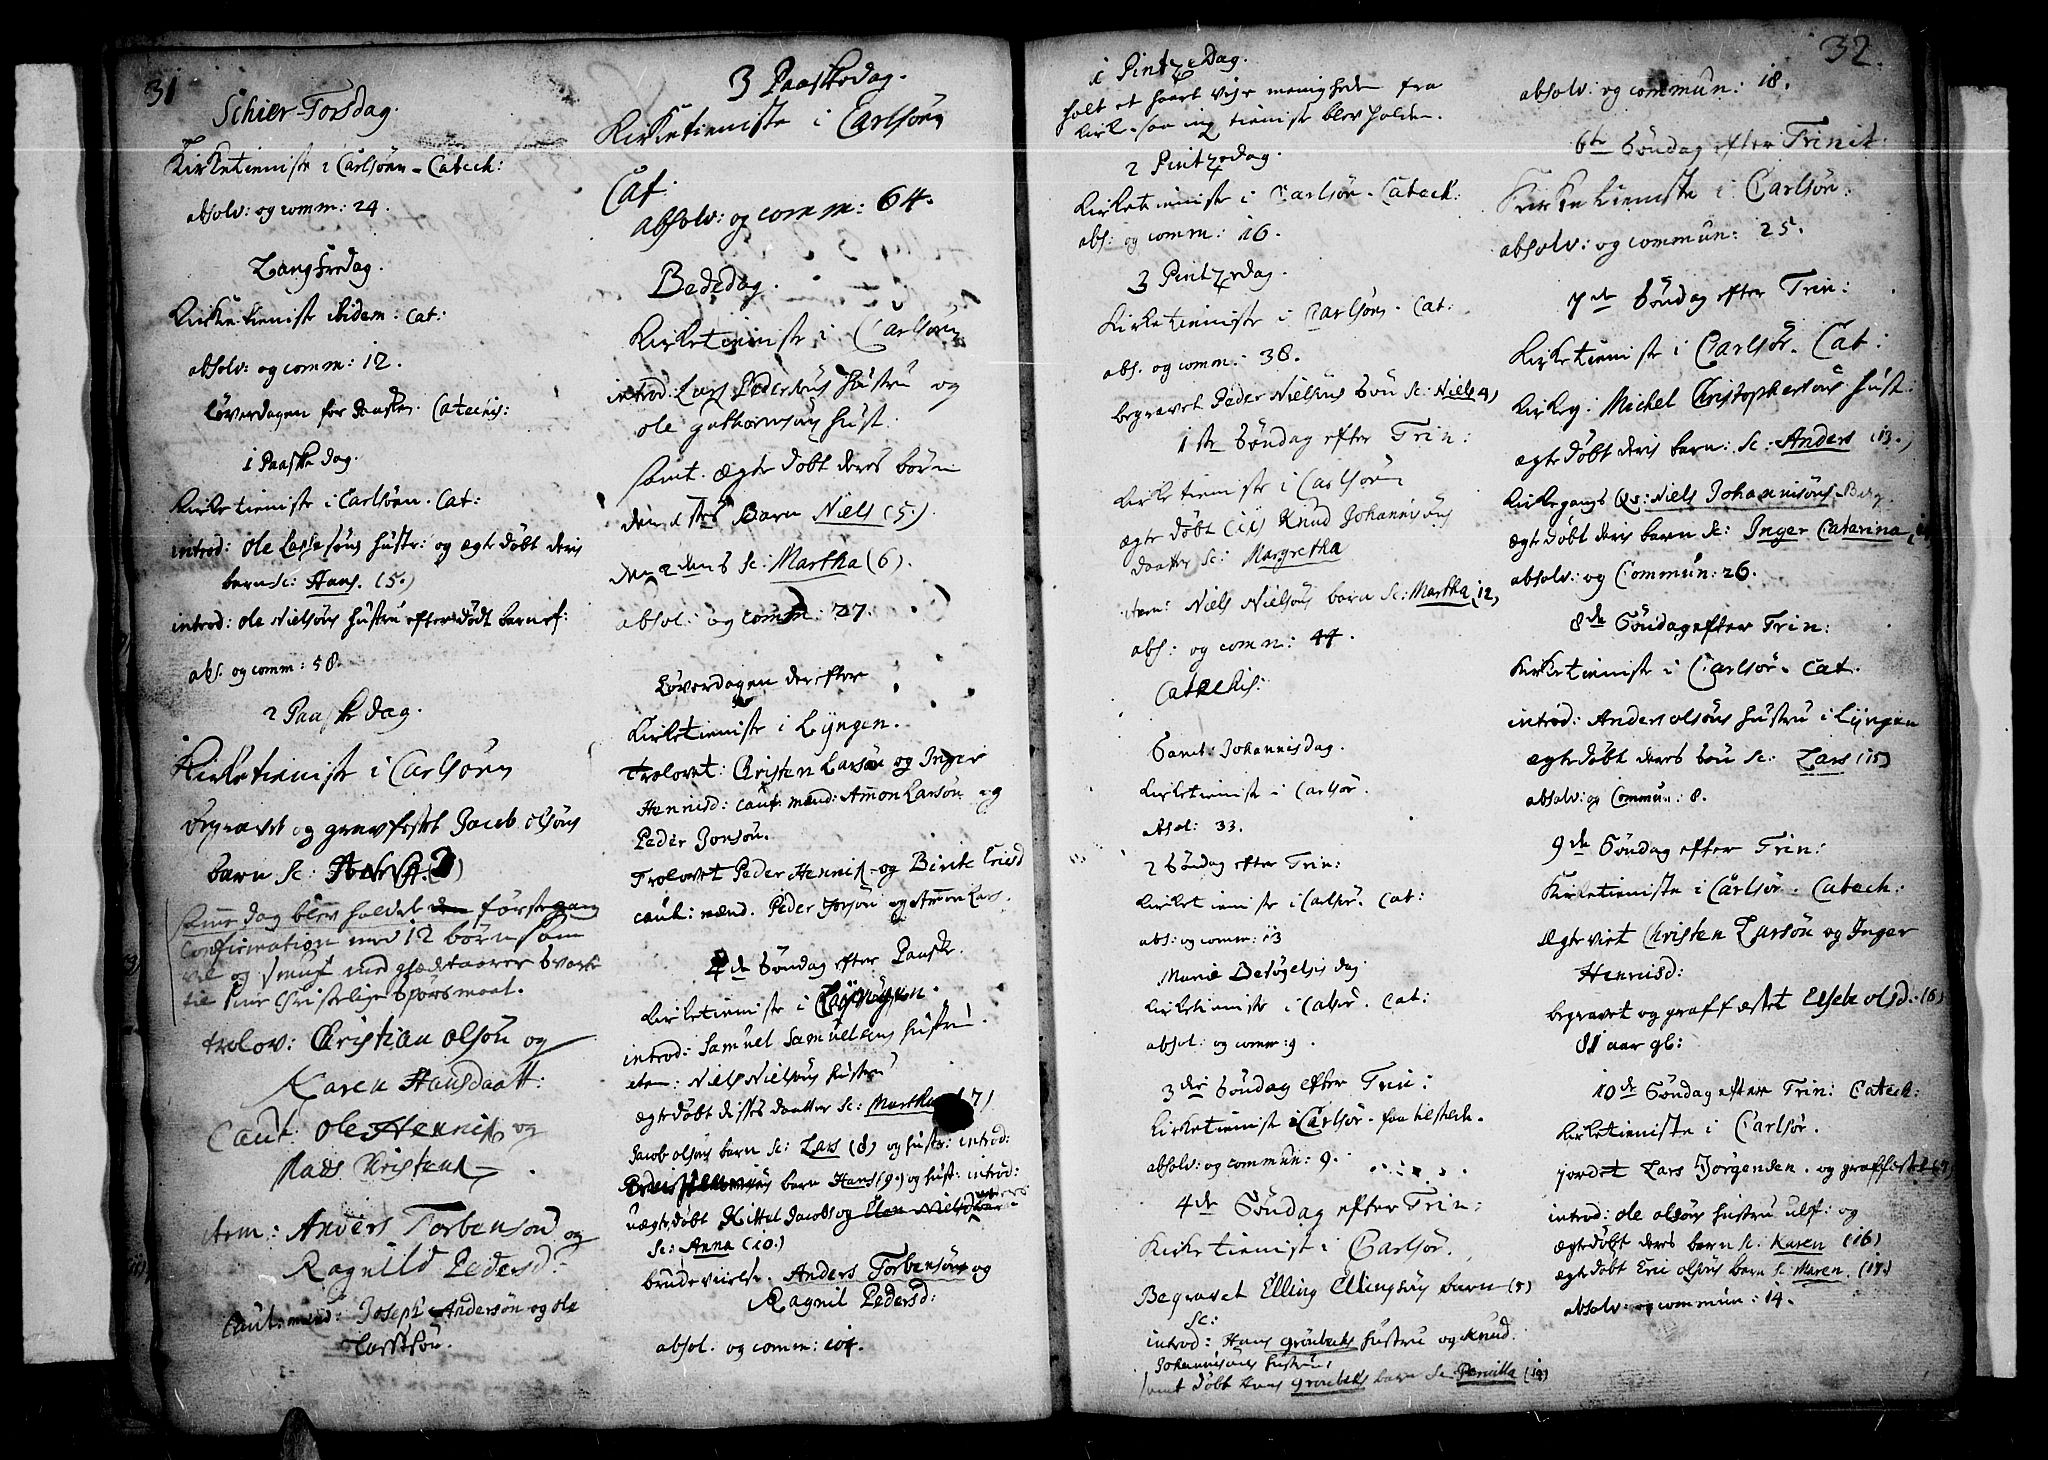 31
Schier-Torsdag.
Kirketieniste i Carlsöen - Catech:
absolv: og comm: 24.
Langfredag.
Kirketieniste ibidem: Cat:
absolv: og comm: 12.
Löverdagen for Paasken. Catechis:
1 Paaske dag.
Kirketieniste i Carlsöen. Cat:
introd: Ole Lassesöns hustr: og ægte döbt deris
barn sc: Hans. (5.)
introd: Ole Nielsöns hustru efter dödt barn f:
abs. og comm: 58.
2 Paaske dag.
Kirketieniste i Carlsöen
begravet og gravfestet Jacob Olsöns
barn sc:
samme dag blev holdet den förste gang
Confirmation med 12 börn som
vel og smuk med glædetaarer svarte
til sine Christelige Spörsmaal.
trolov: Christian Olsön og
Karen Hansdaatt:
Caut: Ole Hennik og
Mads Christens
item: Anders Torbensön og
Ragnild Pedersd:
Caut: mænd: Joseph Andersön og Ole
Larssön.
3 Paaskedag.
Kirketieniste i Carlsöen
Cat:
absolv: og comm: 64.
Bededag.
Kirketieniste i Carlsöen
introd: Lars Pedersöns hustru og
Ole Guthormsöns hust:
samt. ægte döbt deres börn
den 1stes Barn Niels (5).
den 2dens sc: Martha (6).
absol: og comm: 27.
Löverdagen derefter
Kirketieniste i Lyngen.
Trolovet: Christen Larsön og Inger
Hennisd: caut. mænd: Ammon Larsön og
Peder Jonsön.
Trolovet Peder Hennik og Birite
caut: mænd. Peder Jonsön og Ammon Lars.
4de Söndag efter Paaske.
Kirketieniste i Lyngen.
introd: Samuel Samuelsens hustru.
item: Niels Nielsöns hustru
ægte döbt disses daatter sc: Martha (7)
Jacob Olsöns barn sc: Lars (8) og hustr: introd:
barn Hans (9.) og hust: introd:
uægte döbt Kittel Jacobs og Elen Nielsd
sc: Anna (10.)
brudevielse. Anders Torbensöns og
Ragnil Pedersd:
absol: og comm: 104.
32.
1 Pintzedag.
holt et haart vejr menigheden fra
Kirk. saa ing tieniste blev holden.
2 Pintzedag.
Kirketieniste i Carlsör - Catech:
abs: og comm: 16.
3 Pintzedag.
Kirketieniste i Carlsöen. Cat:
abs. og comm: 38.
begravet Peder Nielsöns Sön sc: Niels 4)
1ste Söndag efter Trin:
Kirketieniste i Carlsöen
ægte döbt Knud Johannisöns
daatter sc: Margretha
item: Niels Nielsöns barn sc: Martha (12)
abs: og comm: 44.
Catechis:
Sanct: Johannisdag.
Kirketieniste i Carlsör.
Absol: 33.
2 Söndag efter Trin:
Kirketieniste i Carlsör. Cat:
abs: og comm: 13
Mariæ Besögelsis dag
Kirketieniste i Carlsör. Cat:
absol: og comm: 9.
3die Söndag efter Trin:
Kirketienist i Carlsör. faa tilstede.
absolv: og commun: 9.
4de Söndag efter Trin:
Kirketienist i Carlsör.
Begravet Elling Ellingsöns barn (5)
sc:
introd: Hans Grönbechs hustru og Knud
Johannisöns hustru
samt döbt Hans Grönbechs barn sc. Pernilla
absolv: og commun: 18.
6te Söndag efter Trinit:
Kirketieniste i Carlsön.
absolv: og commun: 25.
7de Söndag efter Trin:
Kirketieniste i Carlsör. Cat:
Kirkeg: Michel Christophersöns hust.
ægte döbt deris barn: sc. Anders (13.)
Kirkegangs Qv: Niels Johannisöns Berg.
ægte döbt deris barn sc: Inger Catarina
absolv: og Commun: 26.
8de Söndag efter Trin:
Kirketieniste i Carlsör. Cat.
introd: Anders Olsöns hustru i Lyngen
ægte döbt deres sön sc: Lars (15)
absolv: og Commun: 8.
9de Söndag efter Trin:
Kirketieniste i Carlsör. Catech:
Ægteviet Christen Larsön og Inger
Hennisd:
begravet og graffæstet Elsebe Olsd. (6)
81 aar gl:
10de Söndag efter Trin: Catech:
Kirketieniste i Carlsör.
jordet Lars Jörgensen. og graffestet (7)
introd: Ole Olsöns hustru ulf: og
ægte döbt deres barn sc. Karen (16)
ægte döbt Eric Olsöns barn sc Maren. (17.)
absolv: og commun: 14.